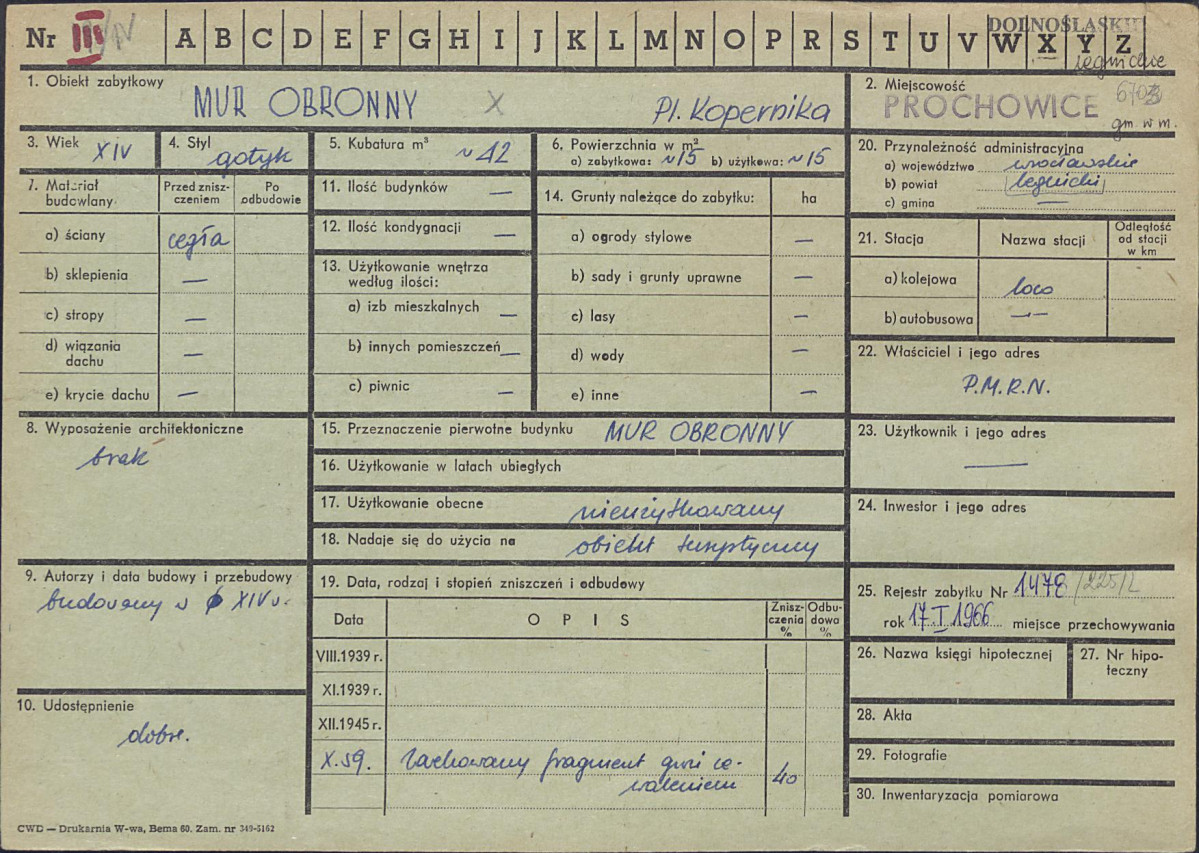 Nr III/IV A B C D E F G H I J K L M N O P R S T U V W X Y Z
DOLNOŚLĄSKIE
legnickie
1. Obiekt zabytkowy
MUR OBRONNY X Pl. Kopernika
2. Miejscowość
PROCHOWICE
gm. w m.
3. Wiek XIV
4. Styl gotyk
5. Kubatura m³ ~ 12
6. Powierzchnia w m²
a) zabytkowa: ~15 b) użytkowa: ~15
7. Materiał budowlany
Przed zniszczeniem
Po odbudowie
a) ściany cegła
b) sklepienia —
c) stropy —
d) wiązania dachu —
e) krycie dachu —
8. Wyposażenie architektoniczne
brak
9. Autorzy i data budowy i przebudowy
budowany w XIV w.
10. Udostępnienie
dobre.
11. Ilość budynków —
12. Ilość kondygnacji —
13. Użytkowanie wnętrza
według ilości:
a) izb mieszkalnych —
b) innych pomieszczeń —
c) piwnic —
14. Grunty należące do zabytku: ha
a) ogrody stylowe —
b) sady i grunty uprawne —
c) lasy —
d) wody —
e) inne —
15. Przeznaczenie pierwotne budynku MUR OBRONNY
16. Użytkowanie w latach ubiegłych
17. Użytkowanie obecne nieużytkowany
18. Nadaje się do użycia na obiekt turystyczny
19. Data, rodzaj i stopień zniszczeń i odbudowy
Data OPIS Zniszczenia % Odbudowa %
VIII.1939 r.
XI.1939 r.
XII.1945 r.
X.59. Zachowany fragment grozi zawaleniem 40
20. Przynależność administracyjna
a) województwo wrocławskie
b) powiat legnicki
c) gmina —
21. Stacja Nazwa stacji Odległość od stacji w km
a) kolejowa loco
b) autobusowa —"—
22. Właściciel i jego adres
P.M.R.N.
23. Użytkownik i jego adres
—
24. Inwestor i jego adres
25. Rejestr zabytku Nr 1478/225/L
rok 17.I.1966 miejsce przechowywania
26. Nazwa księgi hipotecznej
27. Nr hipoteczny
28. Akta
29. Fotografie
30. Inwentaryzacja pomiarowa
CWD — Drukarnia W-wa, Bema 60. Zam. nr 349-5162